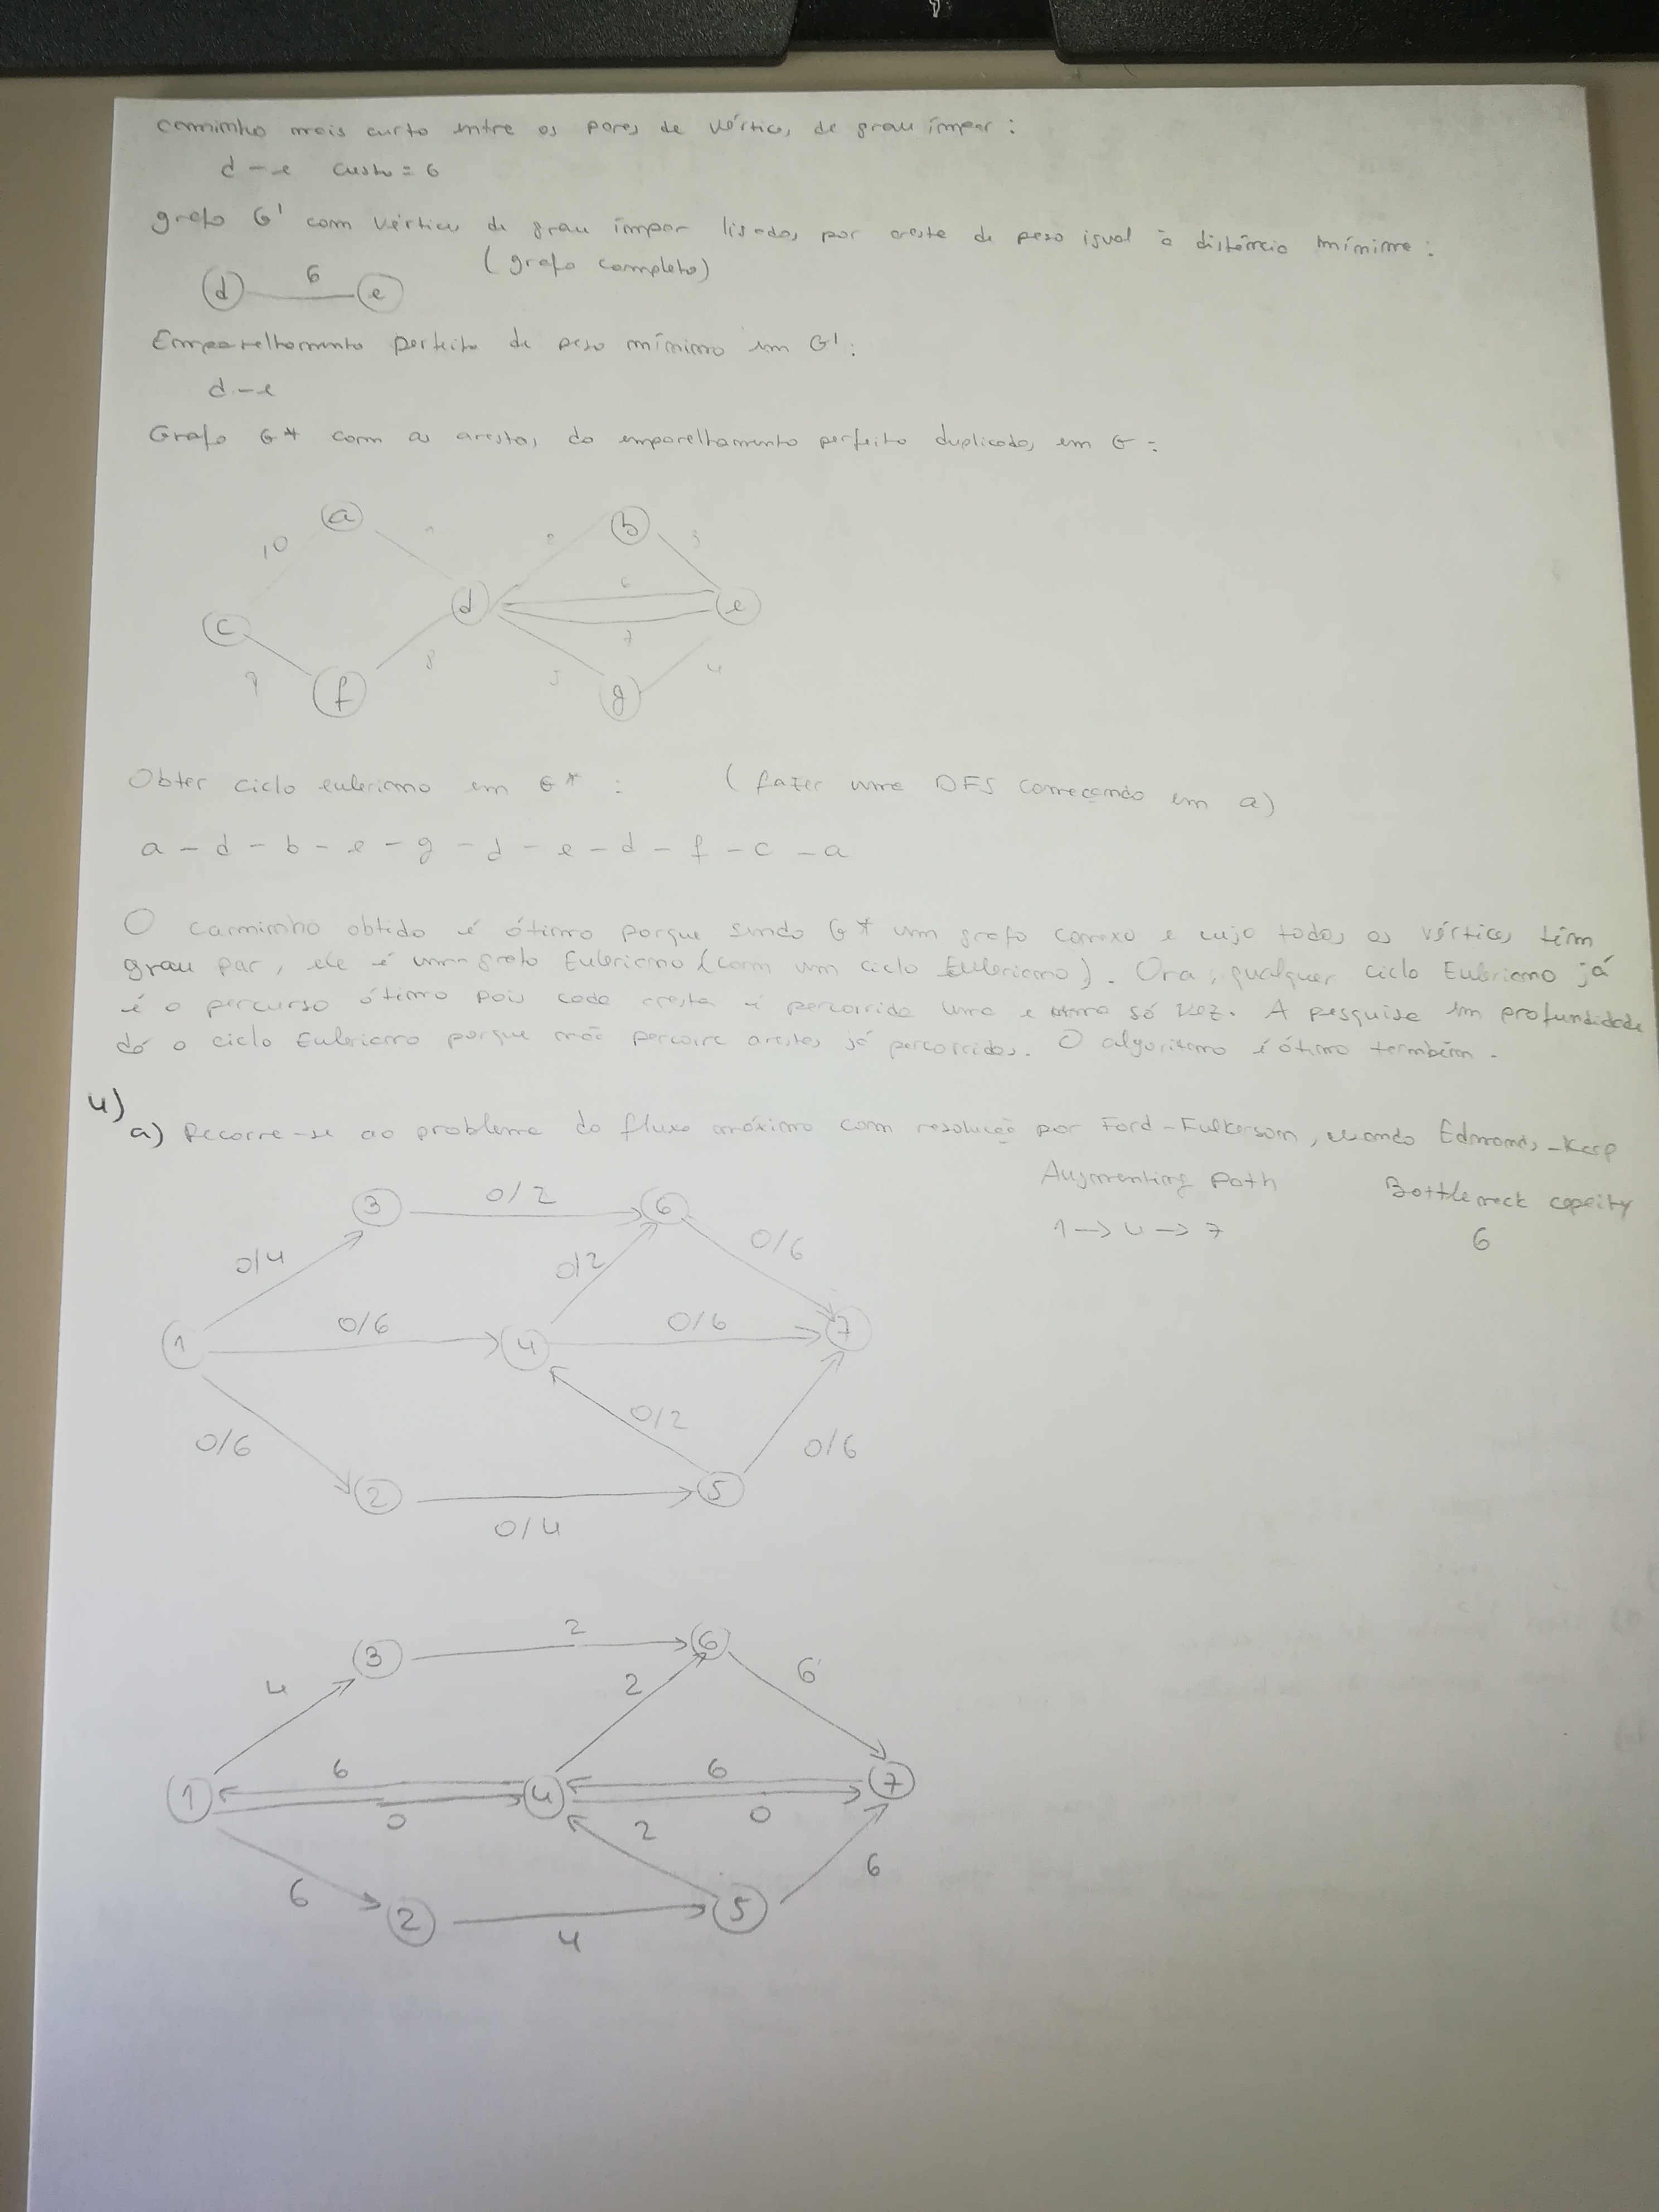 caminho mais curto entre os pares de vértices de grau ímpar :
d - e custo = 6
grafo G' com vértices de grau ímpar ligados por aresta de peso igual à distância mínima :
(grafo completo)
d 6 e
Emparelhamento perfeito de peso mínimo em G' :
d - e
Grafo G* com as arestas do emparelhamento perfeito duplicadas em G :
a b
10 3
6
c d e
7
9 8 5 4
f g
Obter ciclo euleriano em G* : (fazer uma DFS começando em a)
a - d - b - e - g - d - e - d - f - c - a
O caminho obtido é ótimo porque sendo G* um grafo conexo e cujo todos os vértices têm
grau par, ele é um grafo Euleriano (com um ciclo Euleriano). Ora, qualquer ciclo Euleriano já
é o percurso ótimo pois cada aresta é percorrida uma e uma só vez. A pesquisa em profundidade
dá o ciclo Euleriano porque não percorre arestas já percorridas. O algoritmo é ótimo também.
4)
a) Recorre-se ao problema do fluxo máximo com resolução por Ford-Fulkerson, usando Edmonds-Karp
Augmenting Path Bottleneck capcity
1 → 4 → 7 6
3 0/2 6
0/4 0/2 0/6
1 0/6 4 0/6 7
0/6 0/2 0/6
2 0/4 5
3 2 6
4 2 6
6 6
1 4 7
0 0
2
6 6
2 4 5